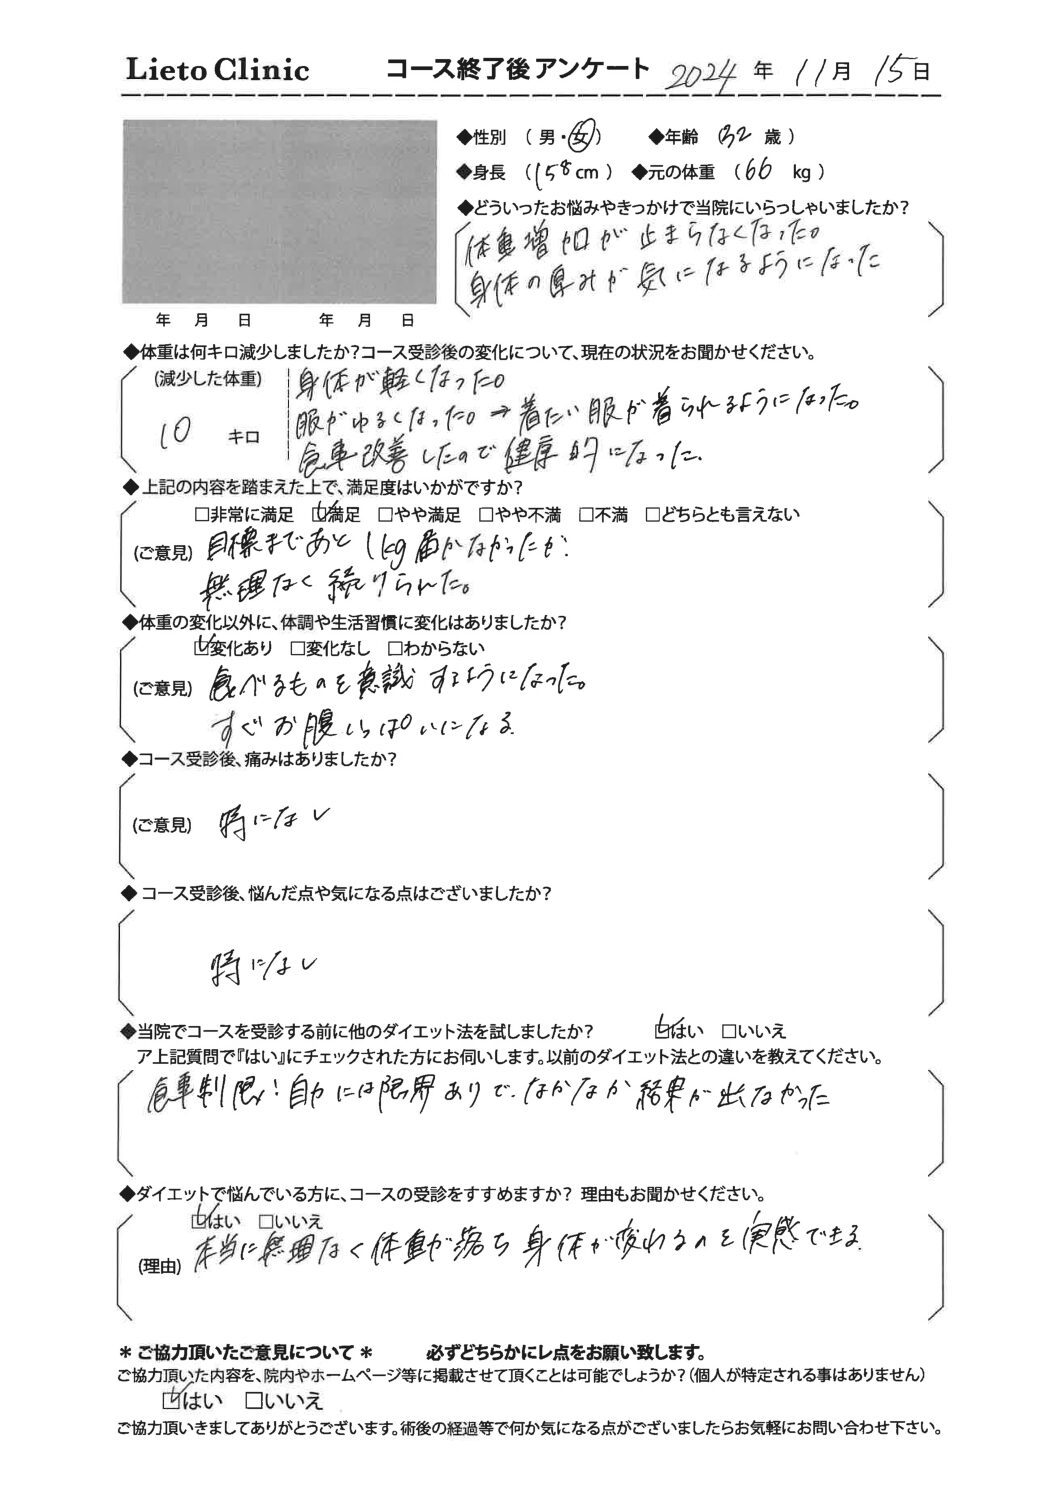 Lieto Clinic コース終了後アンケート 2024年 11月 15日
◆性別 (男・女) ◆年齢 32 歳)
◆身長 (158cm) ◆元の体重 (66 kg)
◆どういったお悩みやきっかけで当院にいらっしゃいましたか?
体重増加が止まらなくなった。
身体の厚みが気になるようになった
年 月 日 年 月 日
◆体重は何キロ減少しましたか?コース受診後の変化について、現在の状況をお聞かせください。
(減少した体重) 身体が軽くなった。
服がゆるくなった。⇒着たい服が着られるようになった。
10 キロ
食事改善したので健康的になった.
◆上記の内容を踏まえた上で、満足度はいかがですか?
□非常に満足 ☑満足 □やや満足 □やや不満 □不満 □どちらとも言えない
(ご意見) 目標まであと1kg届かなかったが.
無理なく続けられた。
◆体重の変化以外に、体調や生活習慣に変化はありましたか?
☑変化あり □変化なし □わからない
(ご意見) 食べるものを意識するようになった。
すぐお腹いっぱいになる.
◆コース受診後、痛みはありましたか?
(ご意見) 特になし
◆コース受診後、悩んだ点や気になる点はございましたか?
特になし
◆当院でコースを受診する前に他のダイエット法を試しましたか? ☑はい □いいえ
ア上記質問で『はい』にチェックされた方にお伺いします。以前のダイエット法との違いを教えてください。
食事制限:自力には限界ありで、なかなか結果が出なかった
◆ダイエットで悩んでいる方に、コースの受診をすすめますか? 理由もお聞かせください。
☑はい □いいえ
(理由) 本当に無理なく体重が落ち身体が変わるのを実感できる.
*ご協力頂いたご意見について* 必ずどちらかにレ点をお願い致します。
ご協力頂いた内容を、院内やホームページ等に掲載させて頂くことは可能でしょうか?(個人が特定される事はありません)
☑はい □いいえ
ご協力頂いきましてありがとうございます。術後の経過等で何か気になる点がございましたらお気軽にお問い合わせ下さい。